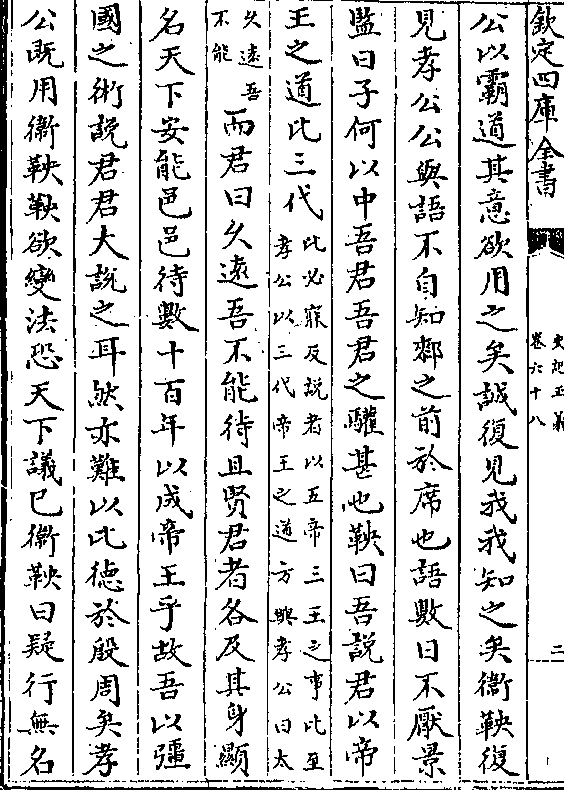 欽定四庫全書
史記正義
卷六十八
二
公以霸道其意欲用之矣誠復見我我知之矣衞鞅復
見孝公公與語不自知厀之前於席也語數日不厭景
監曰子何以中吾君吾君之驩甚也鞅曰吾説君以帝
王之道比三代
比必寐反説者以五帝三王之事比至
孝公以三代帝王之道方興孝公曰太
久逺吾
不能
而君曰久逺吾不能待且賢君者各及其身顯
名天下安能邑邑待數十百年以成帝王乎故吾以彊
國之術説君君大説之耳然亦難以比德於殷周矣孝
公既用衞鞅鞅欲變法恐天下議已衞鞅曰疑行無名